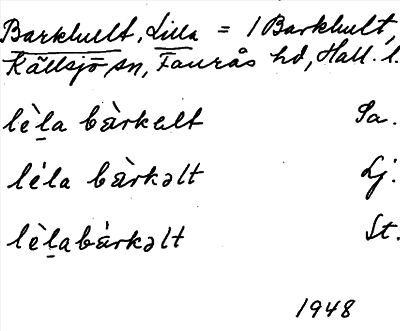 Barkhult, Lilla = 1 Barkhult,
Källsjö sn, Faurås hd, Hall. l.
lèla bàrkelt Sa.
léla bàrkəlt Lj.
lèlabàrkəlt St.
1948